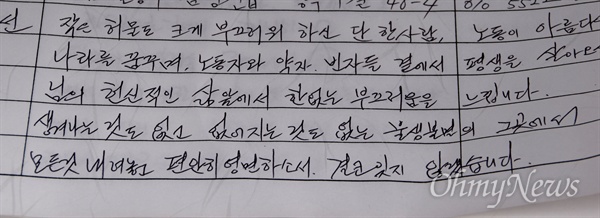 작은 허물도 크게 부끄러워 하신 단 한사람, 노동이 아름다
나라를 꿈꾸며, 노동자와 약자. 빈자들 곁에서 평생을 살아오
님의 헌신적인 삶앞에서 한없는 부끄러움을 느낍니다.
생겨나는 것도 없고 없어지는 것도 없는 불생불멸의 그곳에서
모든것 내려놓고 편안히 영면하소서. 결코 잊지 않겠습니다.
OhmyNews